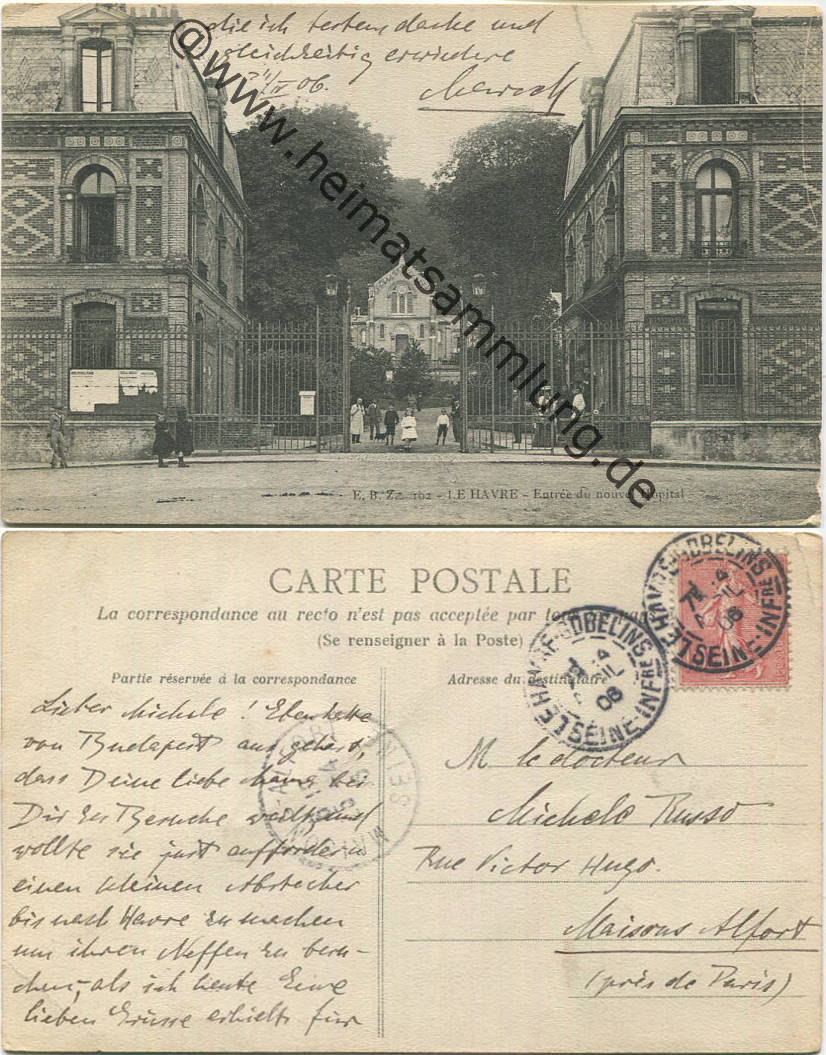 die ich bestens danke und
gleichzeitig erwidere
IV 06.
@www.heimatsammlung.de
E. B. Z. 102 - LE HAVRE - Entrée du nouvel Hôpital
CARTE POSTALE
La correspondance au recto n'est pas acceptée par
(Se renseigner à la Poste)
Partie réservée à la correspondance
Adresse du destinataire
LE HAVRE-GOBELINS
SEINE-INFRE
06
LE HAVRE-GOBELINS
SEINE-INFRE
06
Lieber Michele! Eben hatte
von Budapest aus gehört,
dass Deine liebe Mama bei
Dir zu Besuche weilt und
wollte sie just auffordern
einen kleinen Abstecher
bis nach Havre zu machen
um ihren Neffen zu besu-
chen, als ich heute Eure
lieben Grüsse erhielt für
M le docteur
Michele Russo
Rue Victor Hugo.
Maisons Alfort
(près de Paris)